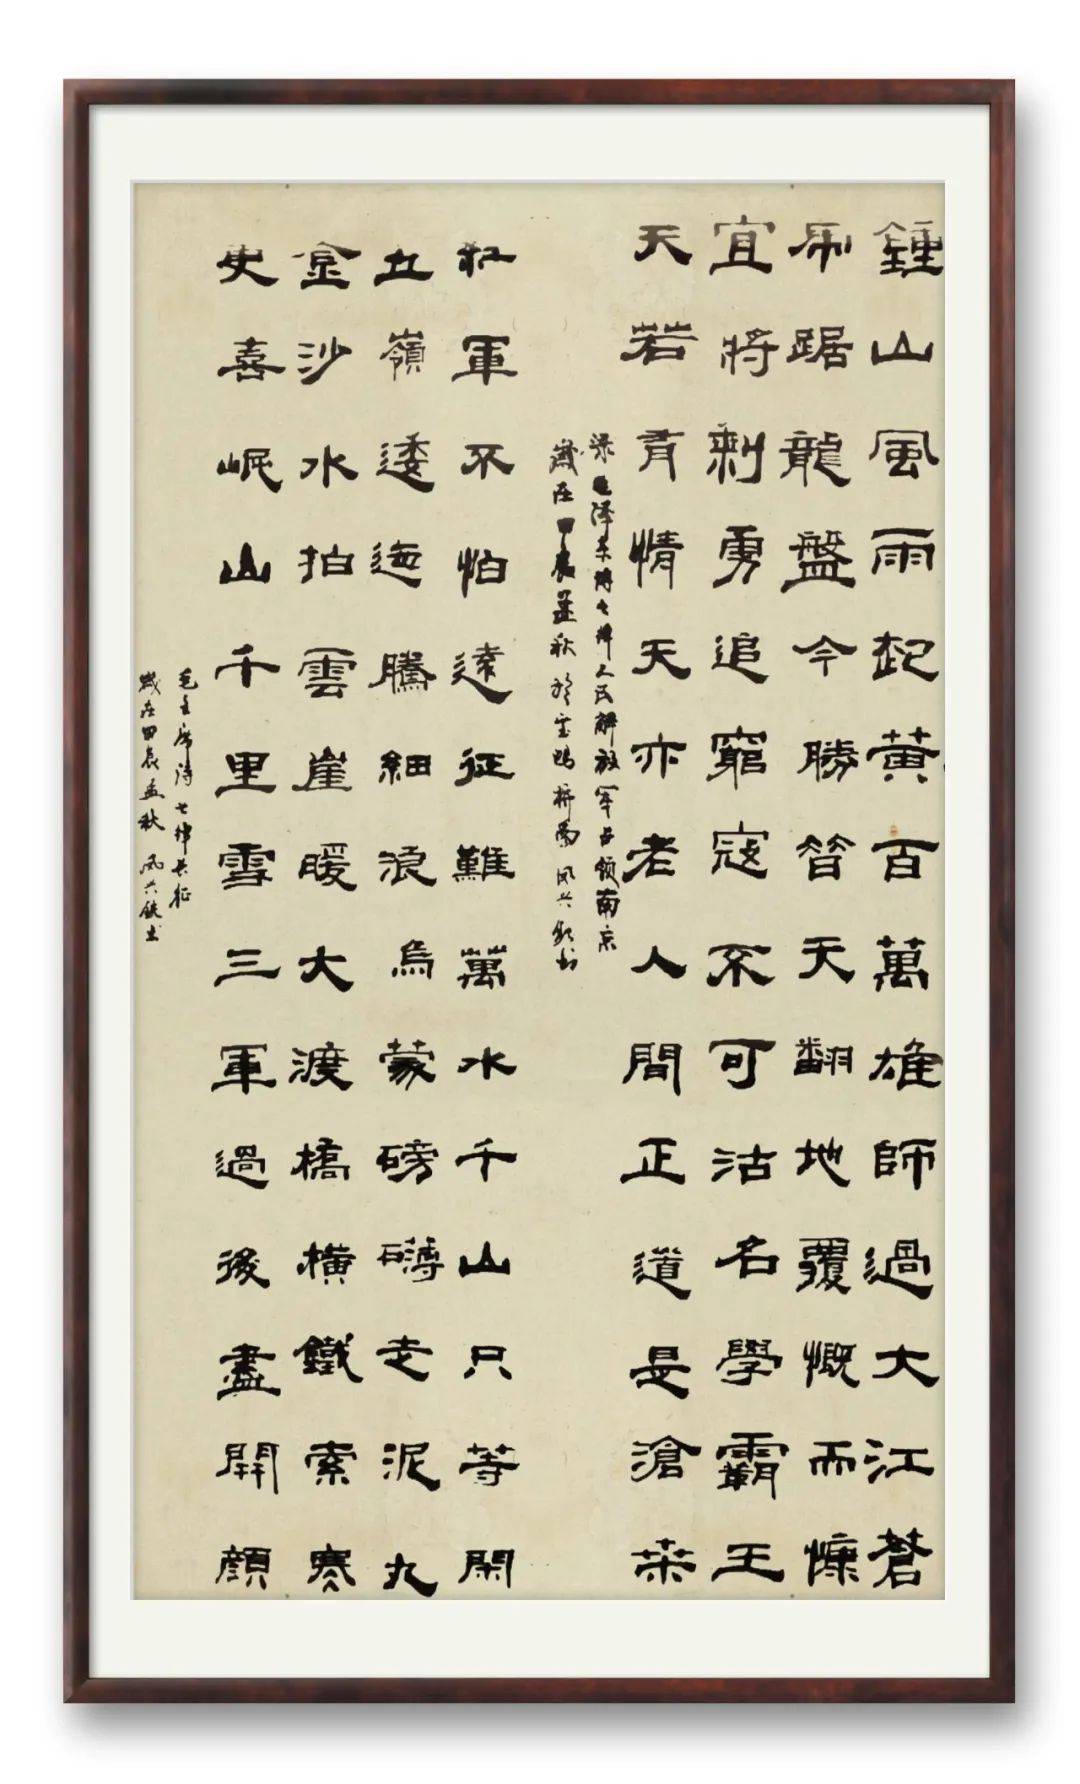 鍾山風雨起黃百萬雄師過大江蒼
虎踞龍盤今勝昔天翻地覆慨而慷
宜將剩勇追窮寇不可沽名學霸王
天若有情天亦老人間正道是滄桑
录毛泽东诗七律人民解放军占领南京
歲在甲辰孟秋於
紅軍不怕遠征難萬水千山只等閑
五嶺逶迤騰細浪烏蒙磅礴走泥丸
金沙水拍雲崖暖大渡橋橫鐵索寒
更喜岷山千里雪三軍過後盡開顏
毛主席诗七律长征
歲在甲辰孟秋